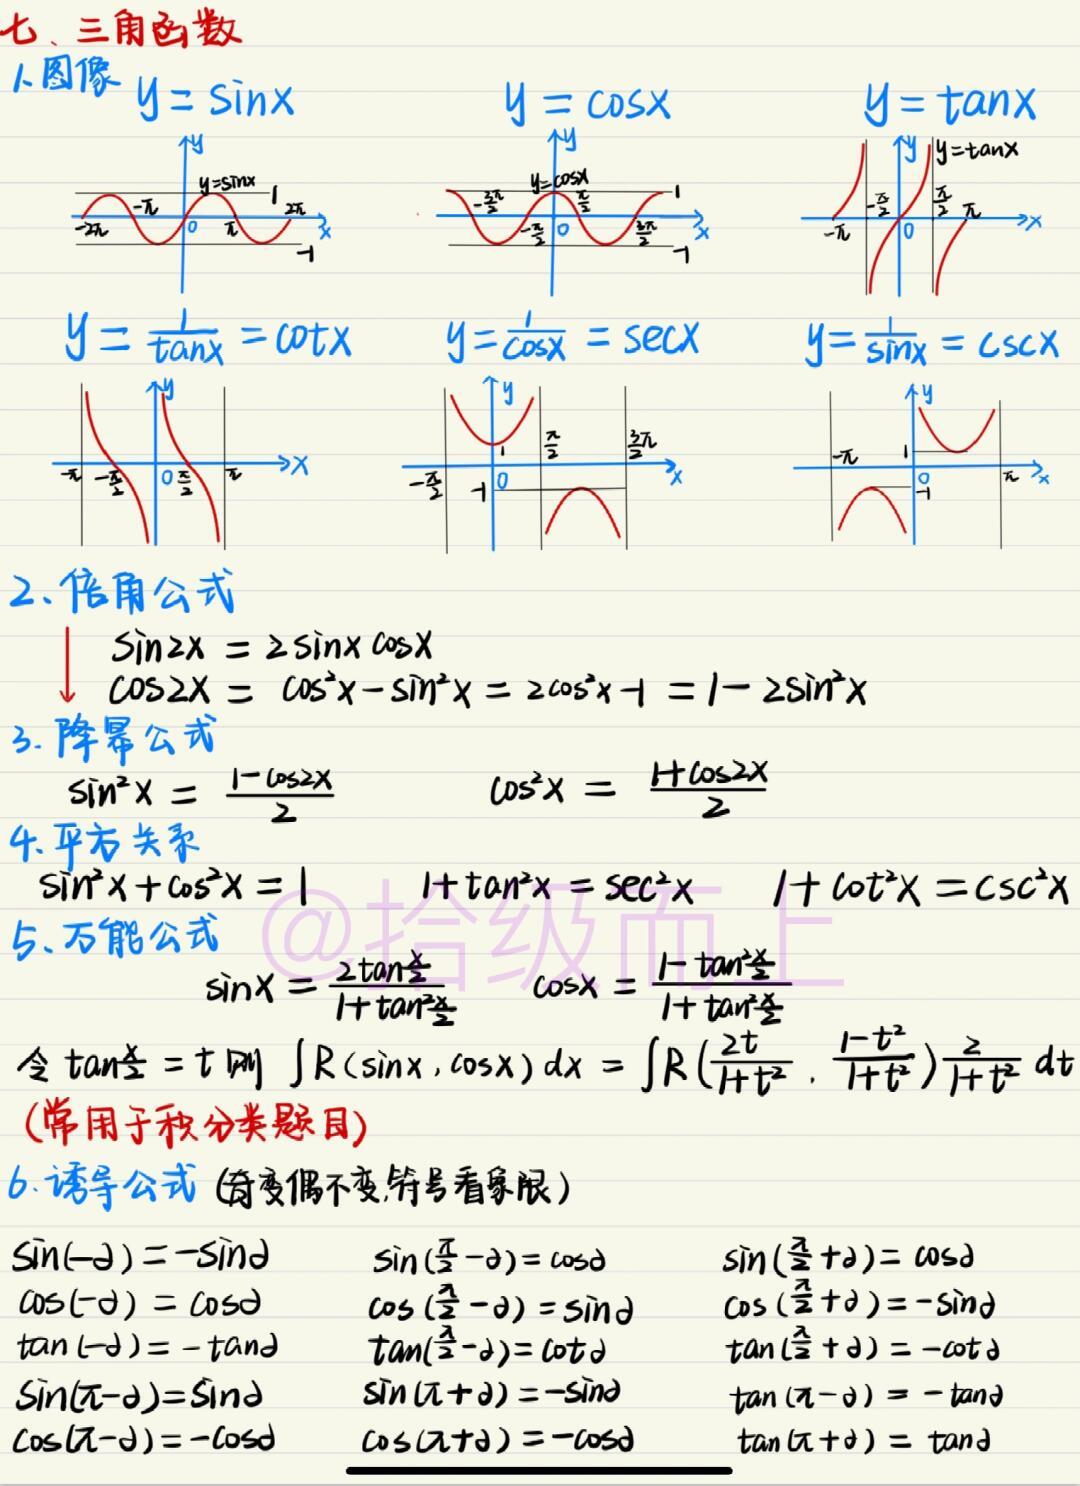 七、三角函数
1.图像
y=sinx y=cosx y=tanx
y y y
y=sinx y=cosx y=tanx
1 1
-2π -π 0 π 2π x -3π/2 -π/2 0 π/2 3π/2 x -π -π/2 0 π/2 π x
-1 -1
y=1/tanx=cotx y=1/cosx=secx y=1/sinx=cscx
y y y
-π -π/2 0 π/2 π x -π/2 0 π/2 3/2π x -π 0 π x
1 -1 1 -1
2、倍角公式
sin2x=2sinxcosx
cos2x=cos²x-sin²x=2cos²x-1=1-2sin²x
3.降幂公式
sin²x=(1-cos2x)/2 cos²x=(1+cos2x)/2
4.平方关系
sin²x+cos²x=1 1+tan²x=sec²x 1+cot²x=csc²x
@拾级而上
5、万能公式
sinx=2tan(x/2)/(1+tan²(x/2)) cosx=(1-tan²(x/2))/(1+tan²(x/2))
令tan(x/2)=t则∫R(sinx,cosx)dx=∫R(2t/(1+t²),(1-t²)/(1+t²))2/(1+t²)dt
(常用于积分类题目)
6.诱导公式(奇变偶不变,符号看象限)
sin(-∂)=-sin∂ sin(π/2-∂)=cos∂ sin(π/2+∂)=cos∂
cos(-∂)=cos∂ cos(π/2-∂)=sin∂ cos(π/2+∂)=-sin∂
tan(-∂)=-tan∂ tan(π/2-∂)=cot∂ tan(π/2+∂)=-cot∂
sin(π-∂)=sin∂ sin(π+∂)=-sin∂ tan(π-∂)=-tan∂
cos(π-∂)=-cos∂ cos(π+∂)=-cos∂ tan(π+∂)=tan∂